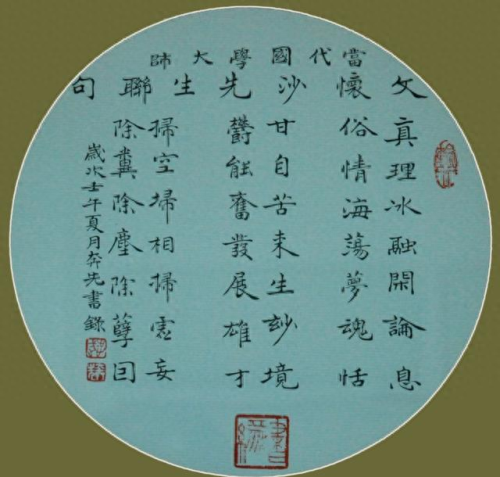 當代國學大師
文懷沙先生聯句
真理冰融閑論息
俗情海蕩夢魂恬
甘自苦来生玅境
欝能奮發展雄才
掃空掃相掃虛妄
除糞除塵除孽囙
歲次壬午夏月奔先書錄